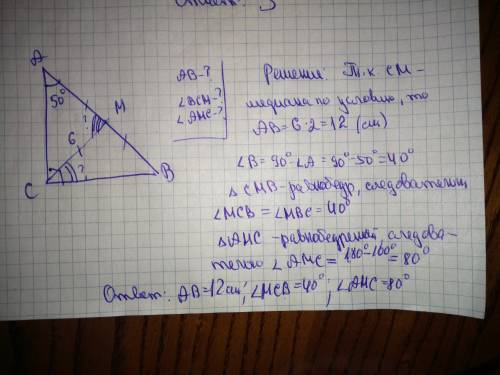 Ответ: 5
A
50°
M
?
6
C
?
B
AB-?
∠BCM-?
∠AMC-?
Решение: Т.к CM-
медиана по условию, то
AB=6·2=12 (см)
∠B=90°-∠A=90°-50°=40°
△CMB-равнобедр, следовательно
∠MCB=∠MBC=40°
△AMC-равнобедренный, следова-
тельно ∠AMC=180°-100°=80°
Ответ: AB=12см; ∠MCB=40°; ∠AMC=80°